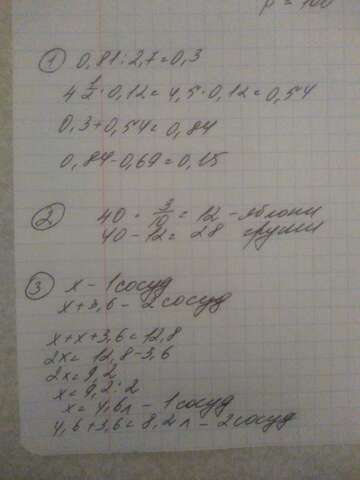 p = 100
① 0,81:2,7=0,3
4 1/2·0,12=4,5·0,12=0,54
0,3+0,54=0,84
0,84-0,69=0,15
② 40 - 3/10 = 12 - яблони
40-12= 28 груши
③ x - 1 сосуд
x+3,6 - 2 сосуд
x+x+3,6=12,8
2x= 12,8-3,6
2x=9,2
x=9,2:2
x=4,6л - 1 сосуд
4,6+3,6=8,2л - 2 сосуд